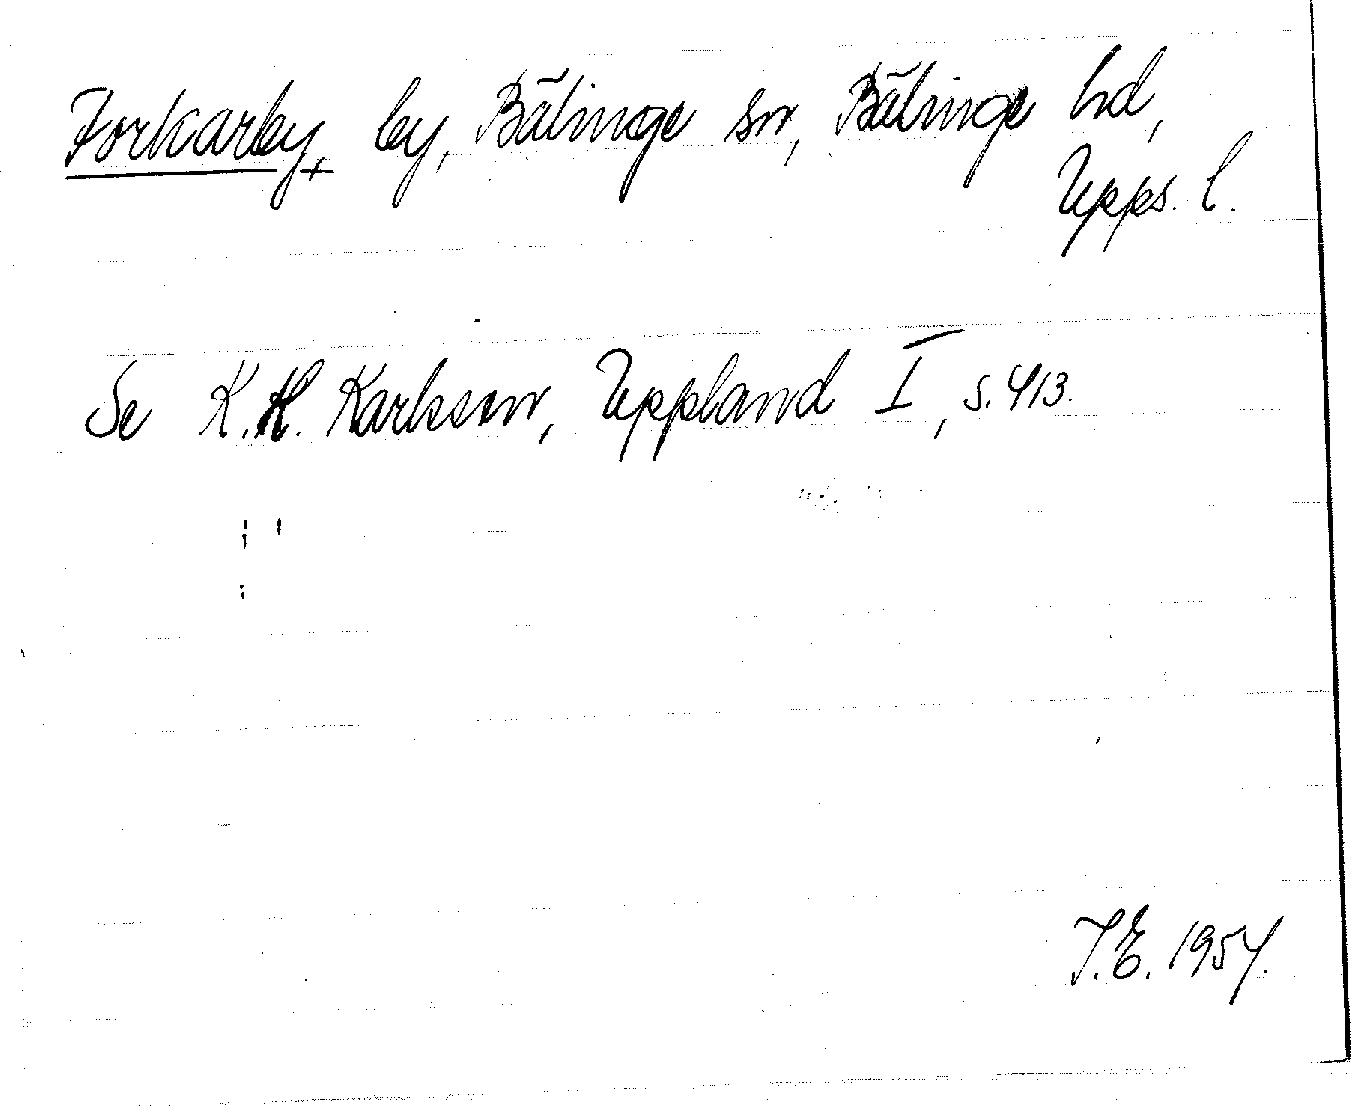 Forkarby, by, Bälinge sn, Bälinge hd,
Upps. l.
Se K.H. Karlsson, Uppland I, s. 413.
J.E. 1954.